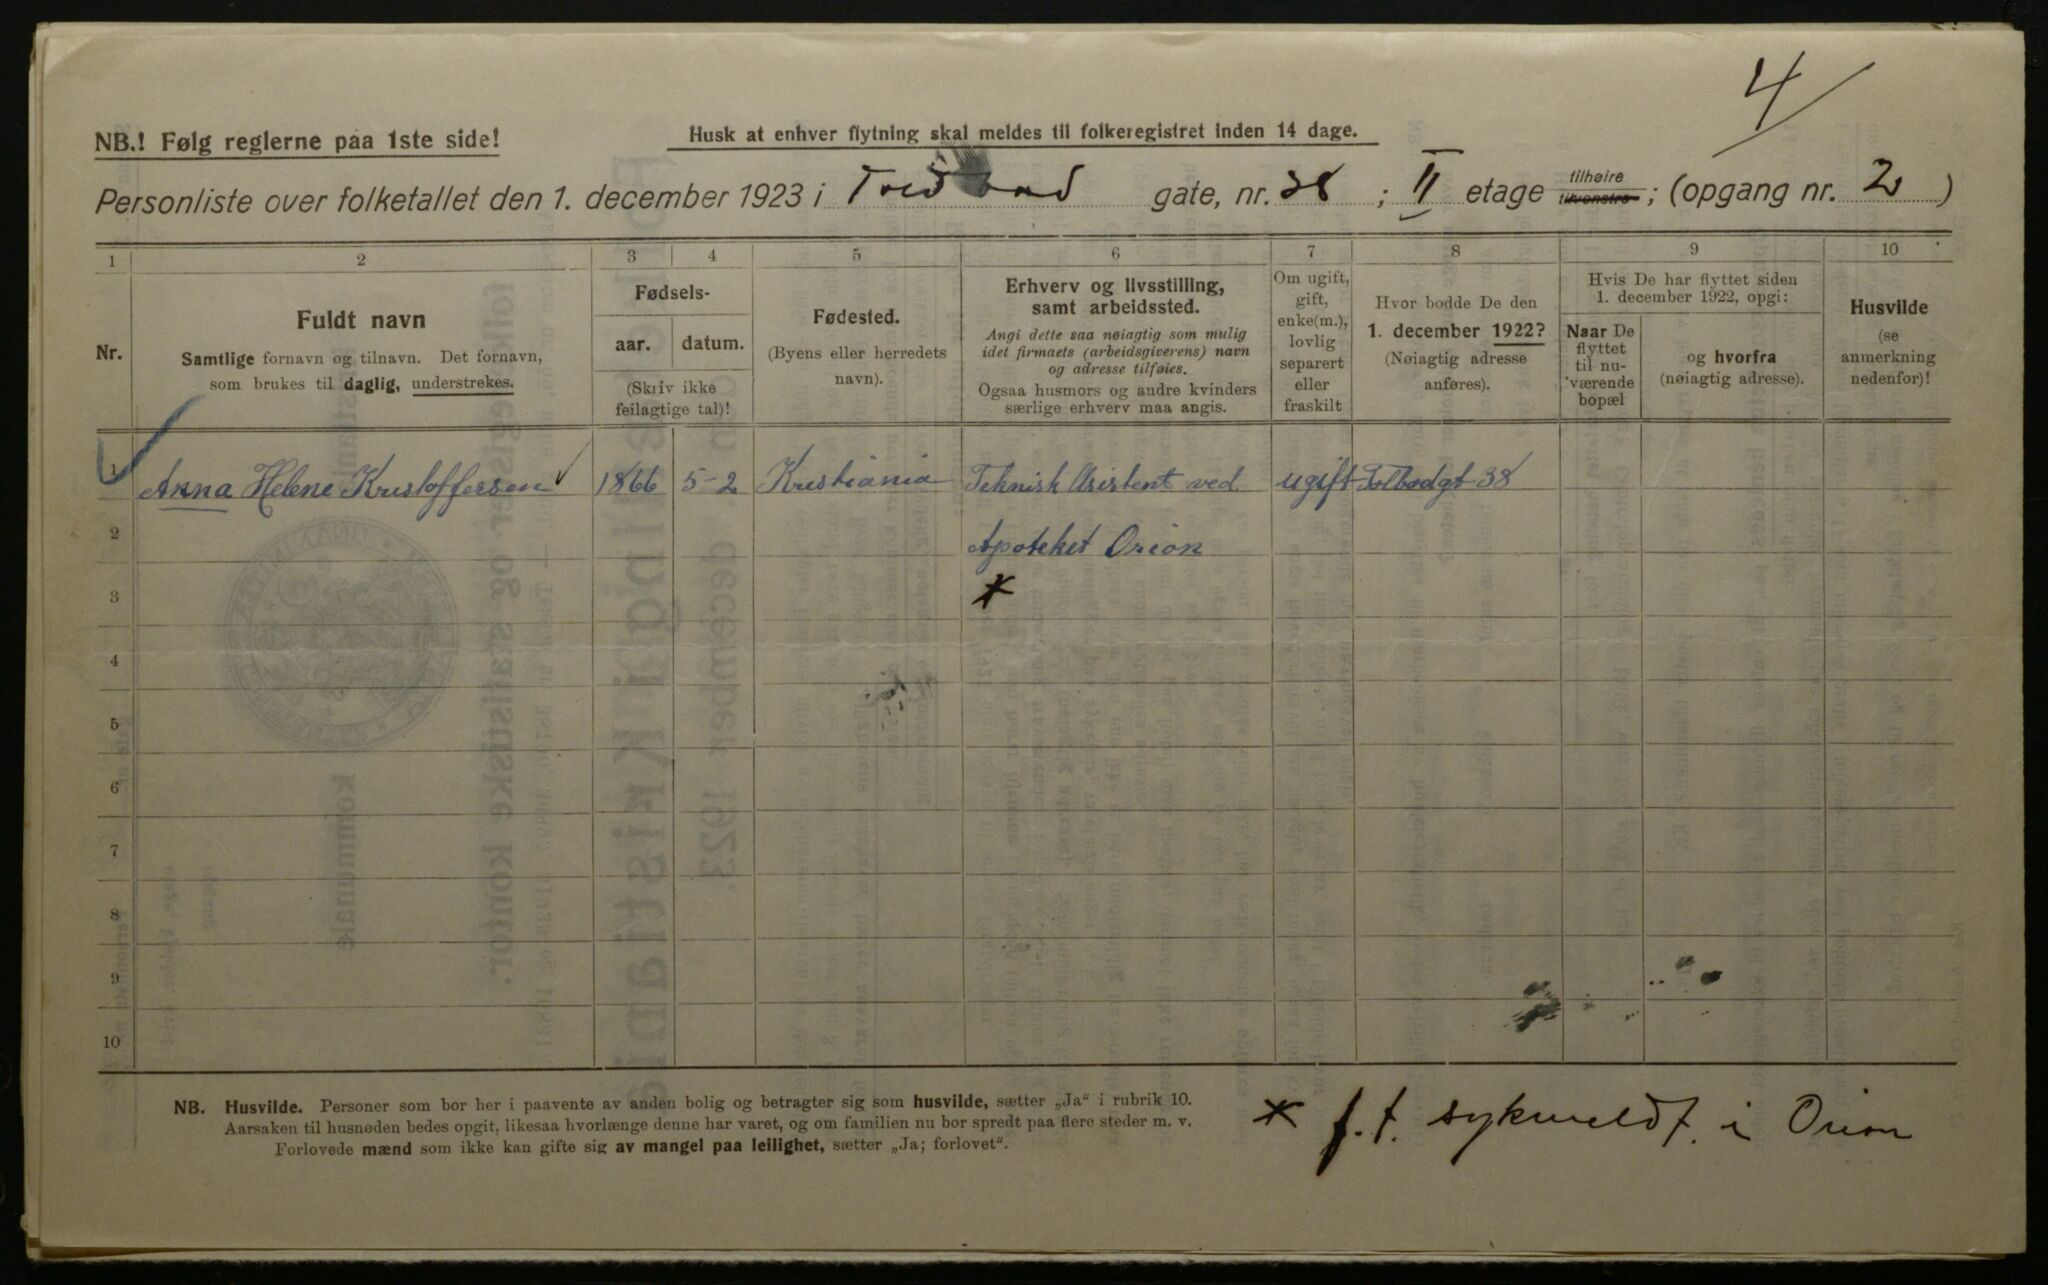 4
NB.! Følg reglerne paa 1ste side!
Husk at enhver flytning skal meldes til folkeregistret inden 14 dage.
Personliste over folketallet den 1. december 1923 i Toldbod gate, nr. 38 ; II etage tilhøire tilvenstre ; (opgang nr. 2 )
1 2 3 4 5 6 7 8 9 10
Nr.
Fuldt navn
Samtlige fornavn og tilnavn. Det fornavn,
som brukes til daglig, understrekes.
Fødsels-
aar. datum.
(Skriv ikke
feilagtige tal)!
Fødested.
(Byens eller herredets
navn).
Erhverv og livsstilling,
samt arbeidssted.
Angi dette saa nøiagtig som mulig
idet firmaets (arbeidsgiverens) navn
og adresse tilføies.
Ogsaa husmors og andre kvinders
særlige erhverv maa angis.
Om ugift,
gift,
enke(m.),
lovlig
separert
eller
fraskilt
Hvor bodde De den
1. december 1922?
(Nøiagtig adresse
anføres).
Hvis De har flyttet siden
1. december 1922, opgi:
Naar De
flyttet
til nu-
værende
bopæl
og hvorfra
(nøiagtig adresse).
Husvilde
(se
anmerkning
nedenfor)!
1 Anna Helene Kristoffersen 1866 5-2 Kristiania Teknisk Asistent ved ugift Tolbodgt 38
2 Apoteket Orion
3 *
4
5
6
7
8
9
10
NB. Husvilde. Personer som bor her i paavente av anden bolig og betragter sig som husvilde, sætter „Ja“ i rubrik 10.
Aarsaken til husnøden bedes opgit, likesaa hvorlænge denne har varet, og om familien nu bor spredt paa flere steder m. v.
Forlovede mænd som ikke kan gifte sig av mangel paa leilighet, sætter „Ja; forlovet“.
* f. t. sykmeldt i Orion